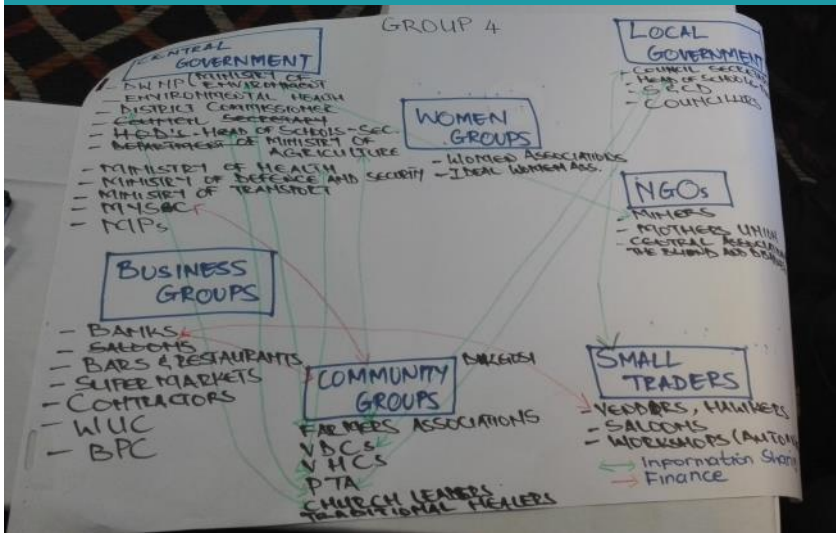 GROUP 4
CENTRAL
GOVERNMENT
- DWNP (MINISTRY OF
ENVIRONMENT
- ENVIRONMENTAL HEALTH
- DISTRICT COMMISSIONER
- COUNCIL SECRETARY
- H.O.D's - HEAD OF SCHOOLS - SEC.
- DEPARTMENT OF MINISTRY OF
AGRICULTURE
- MINISTRY OF HEALTH
- MINISTRY OF DEFENCE AND SECURITY
- MINISTRY OF TRANSPORT
- MYSC
- MPs
WOMEN
GROUPS
- WOMEN ASSOCIATIONS
- IDEAL WOMEN ASS.
LOCAL
GOVERNMENT
- COUNCIL
- HEAD OF SCHOOLS
- COUNCILLORS
NGOs
- MINERS
- MOTHERS UNION
- CENTRAL
THE BLIND AND
BUSINESS
GROUPS
- BANKS
- SALOONS
- BARS & RESTAURANTS
- SUPERMARKETS
- CONTRACTORS
- WUC
- BPC
COMMUNITY
GROUPS
DIKGOSI
FARMERS ASSOCIATIONS
VDCs
VHCs
PTA
CHURCH LEADERS
TRADITIONAL HEALERS
SMALL
TRADERS
- VENDORS, HAWKERS
- SALOONS
- WORKSHOPS
Information
Finance